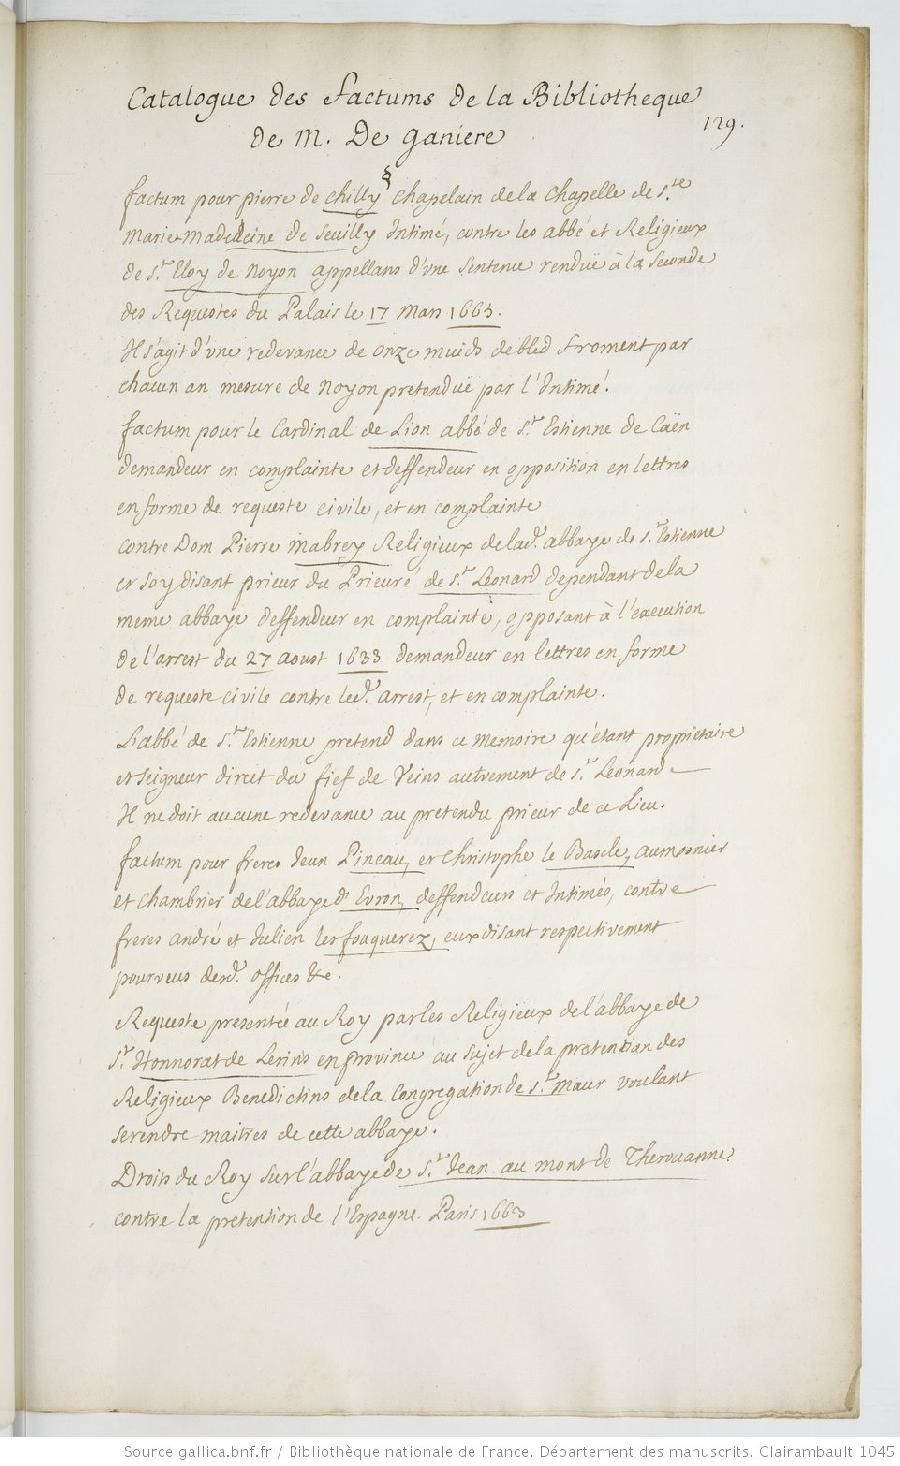 Catalogue des factums de la Bibliotheque
de M. De ganiere
129.
§
factum pour pierre de chilly chapelain de la chapelle de Ste
Marie Madelleine de Seuilly Intimé, contre les abbé et Religieux
de St Eloy de Noyon appellans d'une sentence rendüe à la seconde
des Requestes du Palais le 17 Mars 1665.
Il s'agit d'une redevance de onze muids de bled froment par
chacun an mesure de Noyon pretendüe par l'Intimé.
factum pour le Cardinal de Lion abbé de St Estienne de Caën
demandeur en complainte et deffendeur en opposition en lettres
en forme de requeste civile, et en complainte
contre Dom Pierre mabrey Religieux de lad. abbaye de St Estienne
et soy disant prieur du Prieuré de St Leonard dependant de la
meme abbaye deffendeur en complainte, opposant à l'execution
de l'arrest du 27 aoust 1633 demandeur en lettres en forme
de requeste civile contre led. arrest, et en complainte.
L'abbé de St Estienne pretend dans ce memoire qu'étant proprietaire
et seigneur direct du fief de Veins autrement de St Leonard
Il ne doit aucune redevance au pretendu prieur de ce Lieu.
factum pour freres Jean Pineau, et Christophe le Bascle, aumosnier
et chambrier de l'abbaye d'Evron, deffendeurs et Intimés, contre
freres andré et Julien les fouquerez, eux disant respectivement
pourveus desd. offices &c.
Requeste presentée au Roy par les Religieux de l'abbaye de
St Honnorat de Lerins en provence au sujet de la pretention des
Religieux Benedictins de la Congregation de St Maur voulant
se rendre maitres de cette abbaye.
Droits du Roy sur l'abbaye de St Jean au mont de Therouanne
contre la pretention de l'Espagne. Paris 1663
Source gallica.bnf.fr / Bibliothèque nationale de France. Département des manuscrits. Clairambault 1045